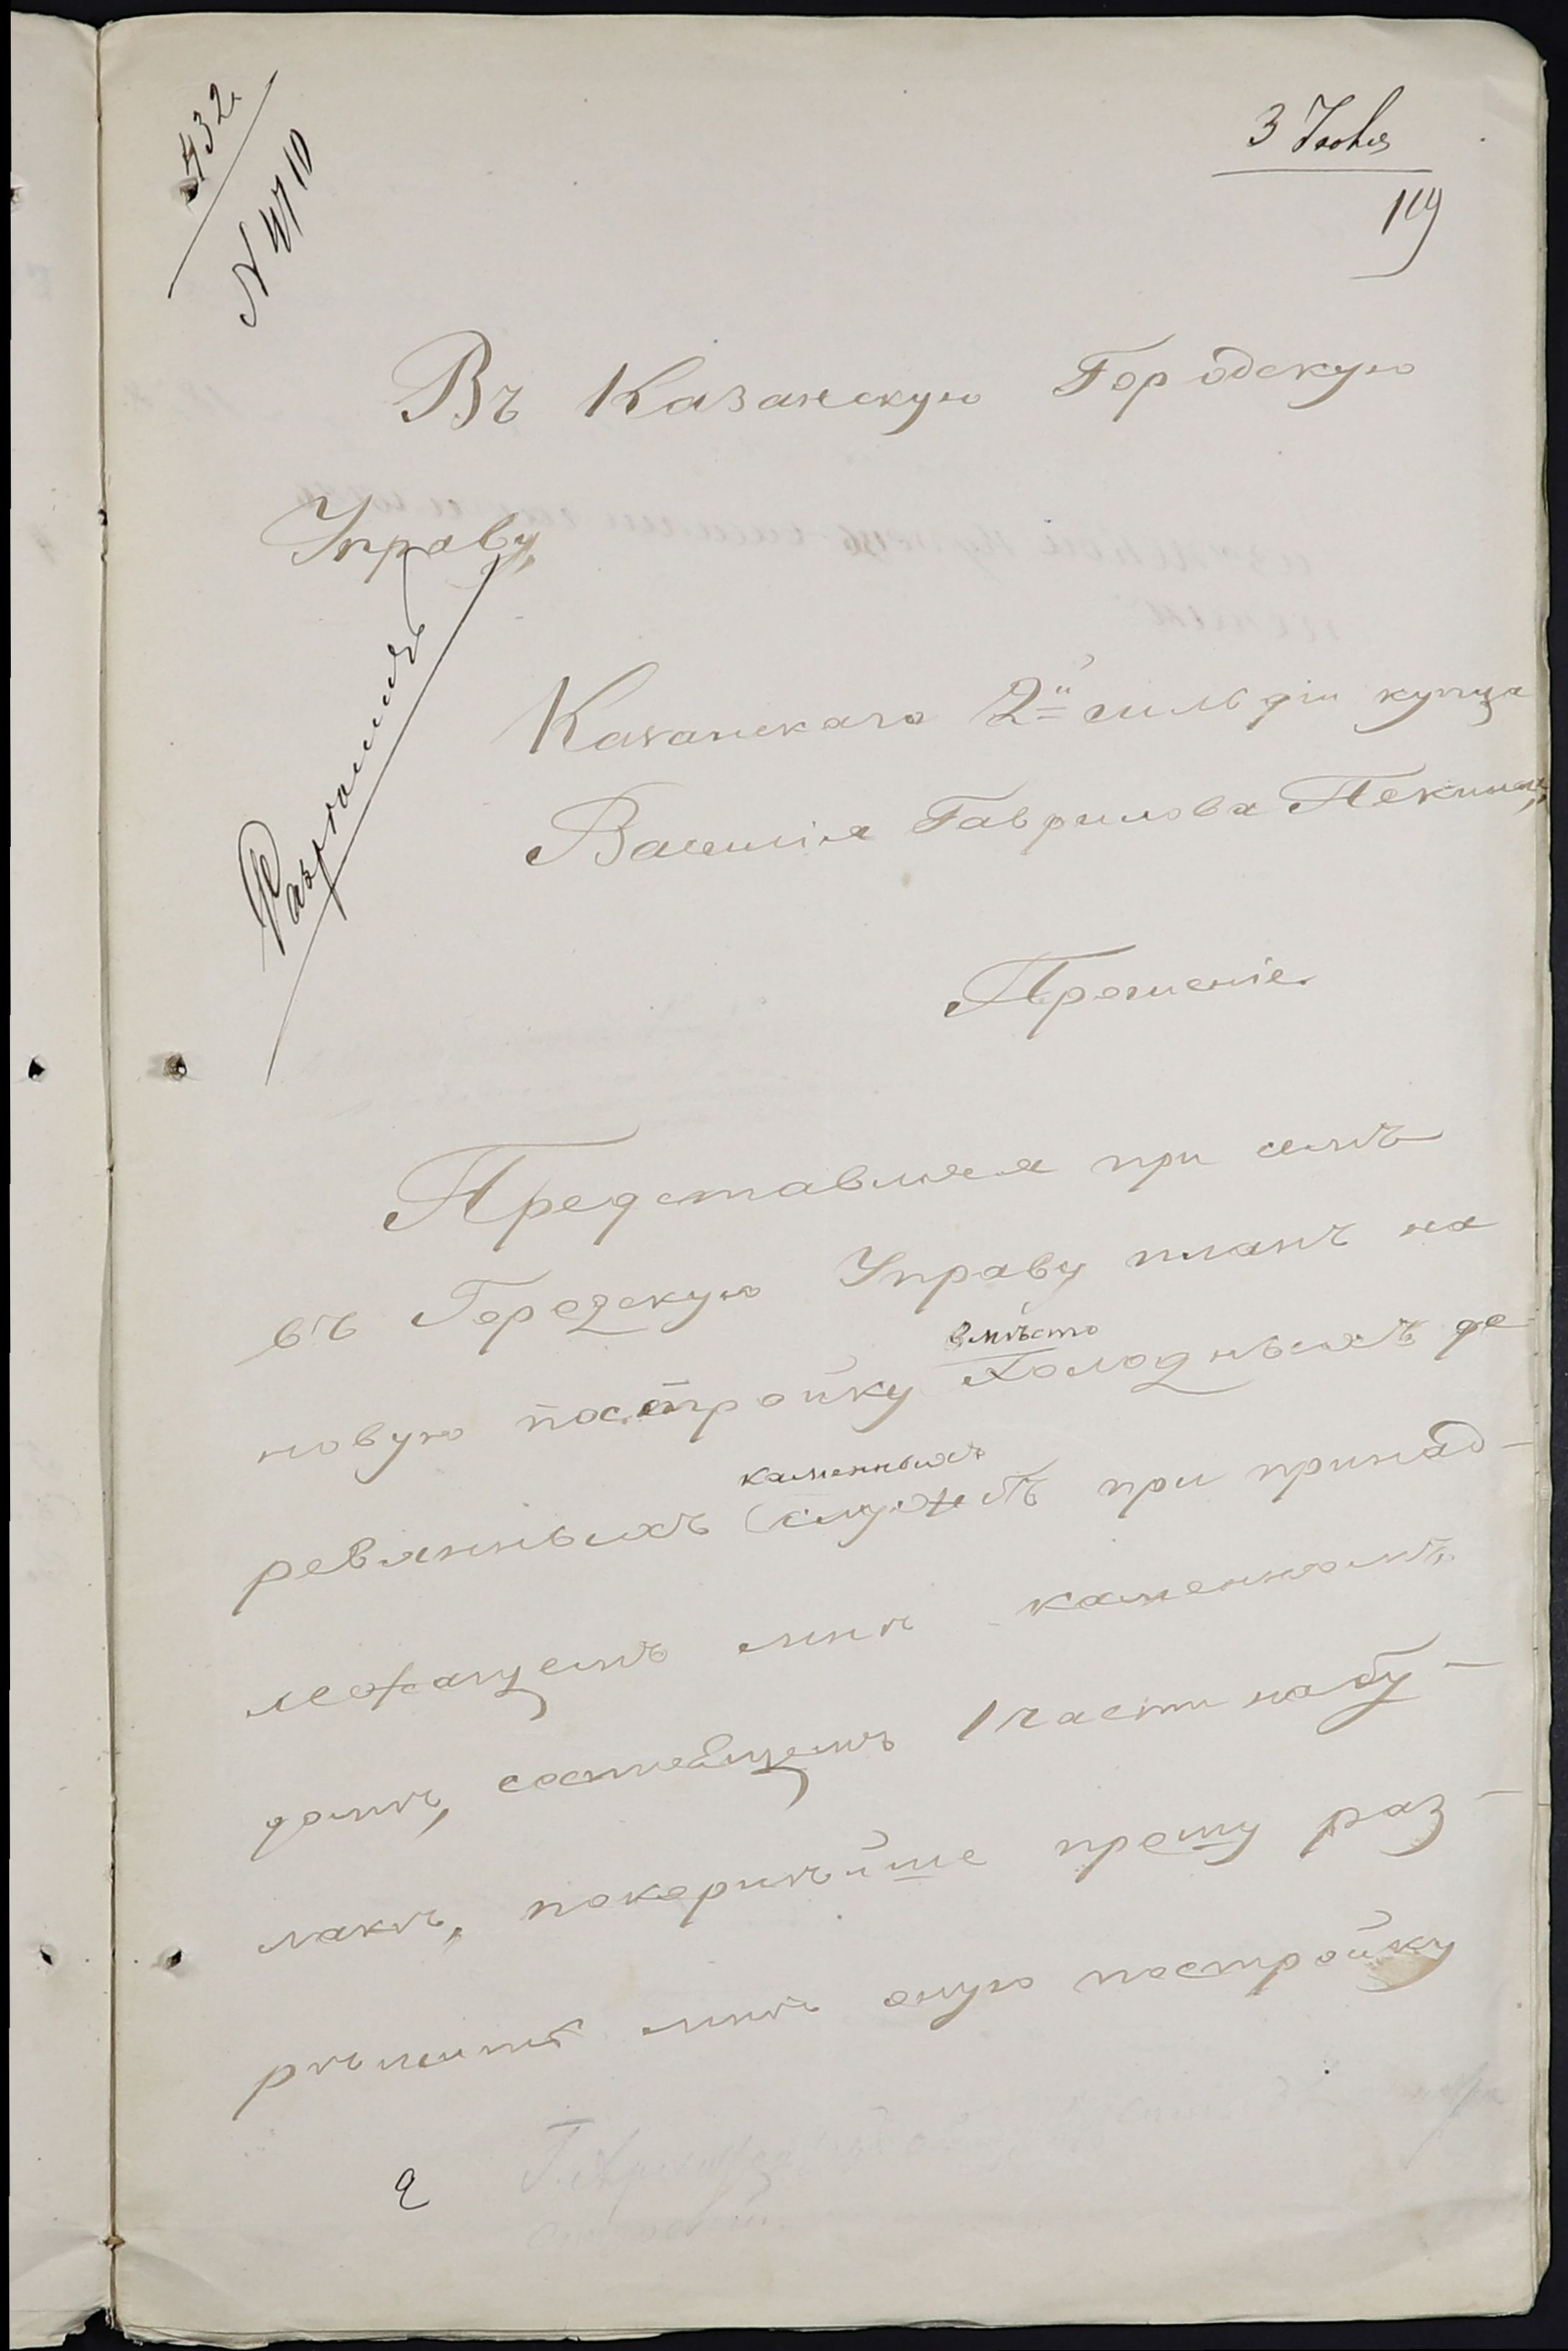 432
N 4710
3 Июня
119
Въ Казанскую Городскую
Управу,
Казанскаго 2й гильдіи купца
Василія Гаврилова Пекина,
Разрешить
Прошеніе
Представляя при семъ
въ Городскую Управу планъ на
вмѣсто
новую постройку холодныхъ де
каменныхъ
ревянныхъ службъ при принад-
лежащемъ мнѣ каменномъ
домѣ, состоящемъ 1 части на бу-
лакѣ, покорнѣйше прошу раз-
рѣшить мнѣ оную постройку